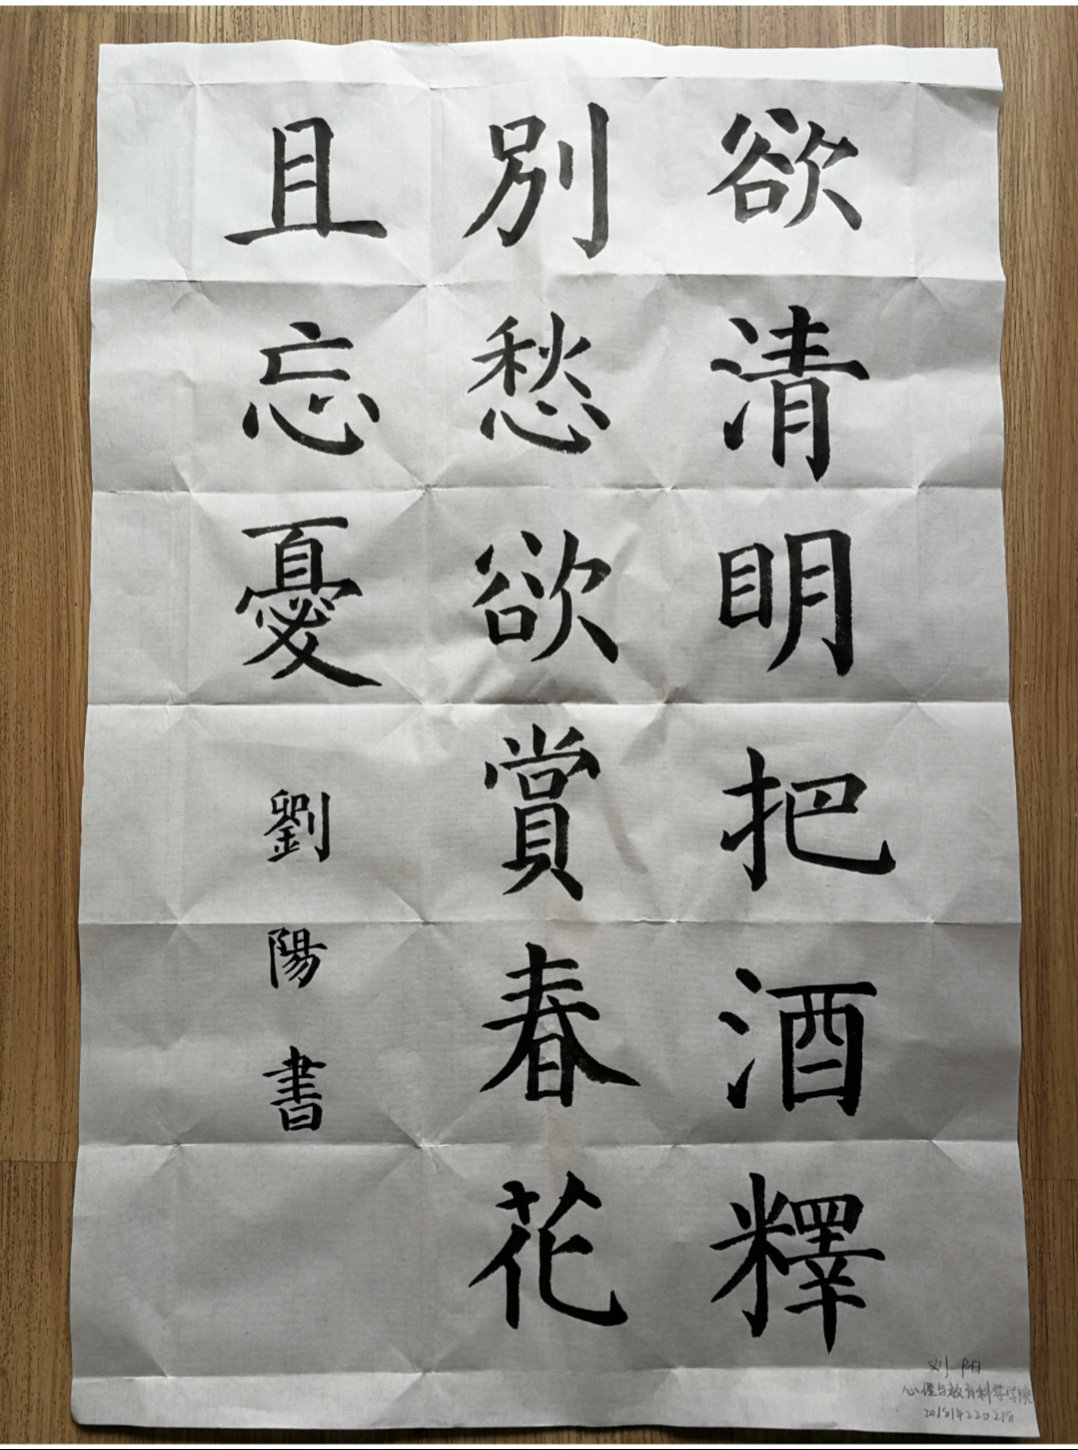 欲清明把酒釋
別愁欲賞春花
且忘憂
劉陽書
刘阳
心理与教育科学学院
201814220218